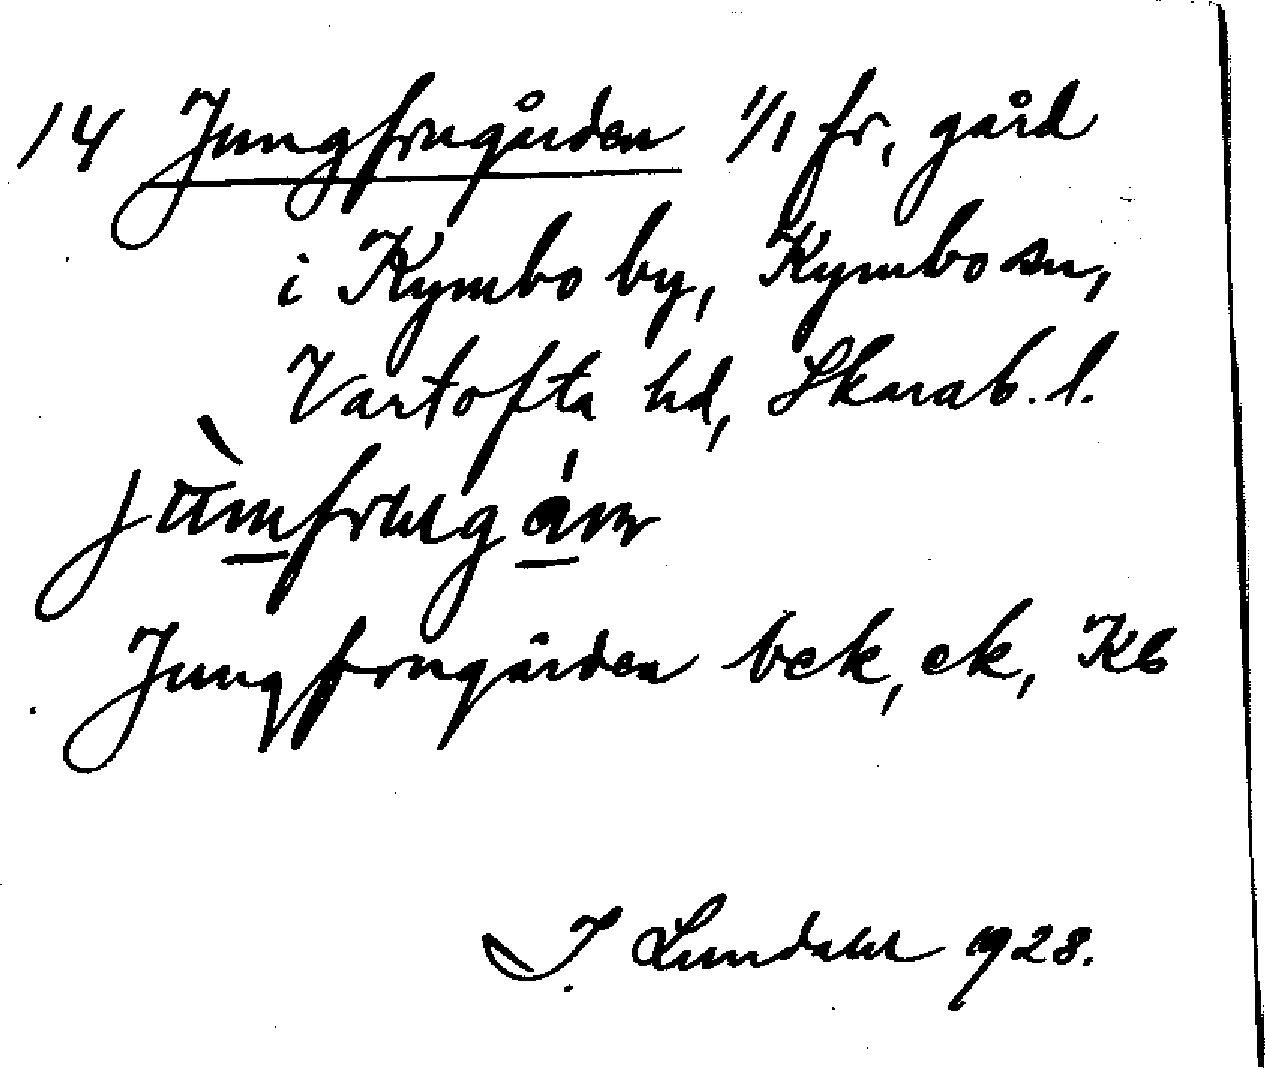 14 Jungfrugården 1/1 fr, gård
i Kymbo by, Kymbo sn,
Vartofta hd, Skarab. l.
Jungfrugården bek, ek, Kb
I. Lundahl 1928.